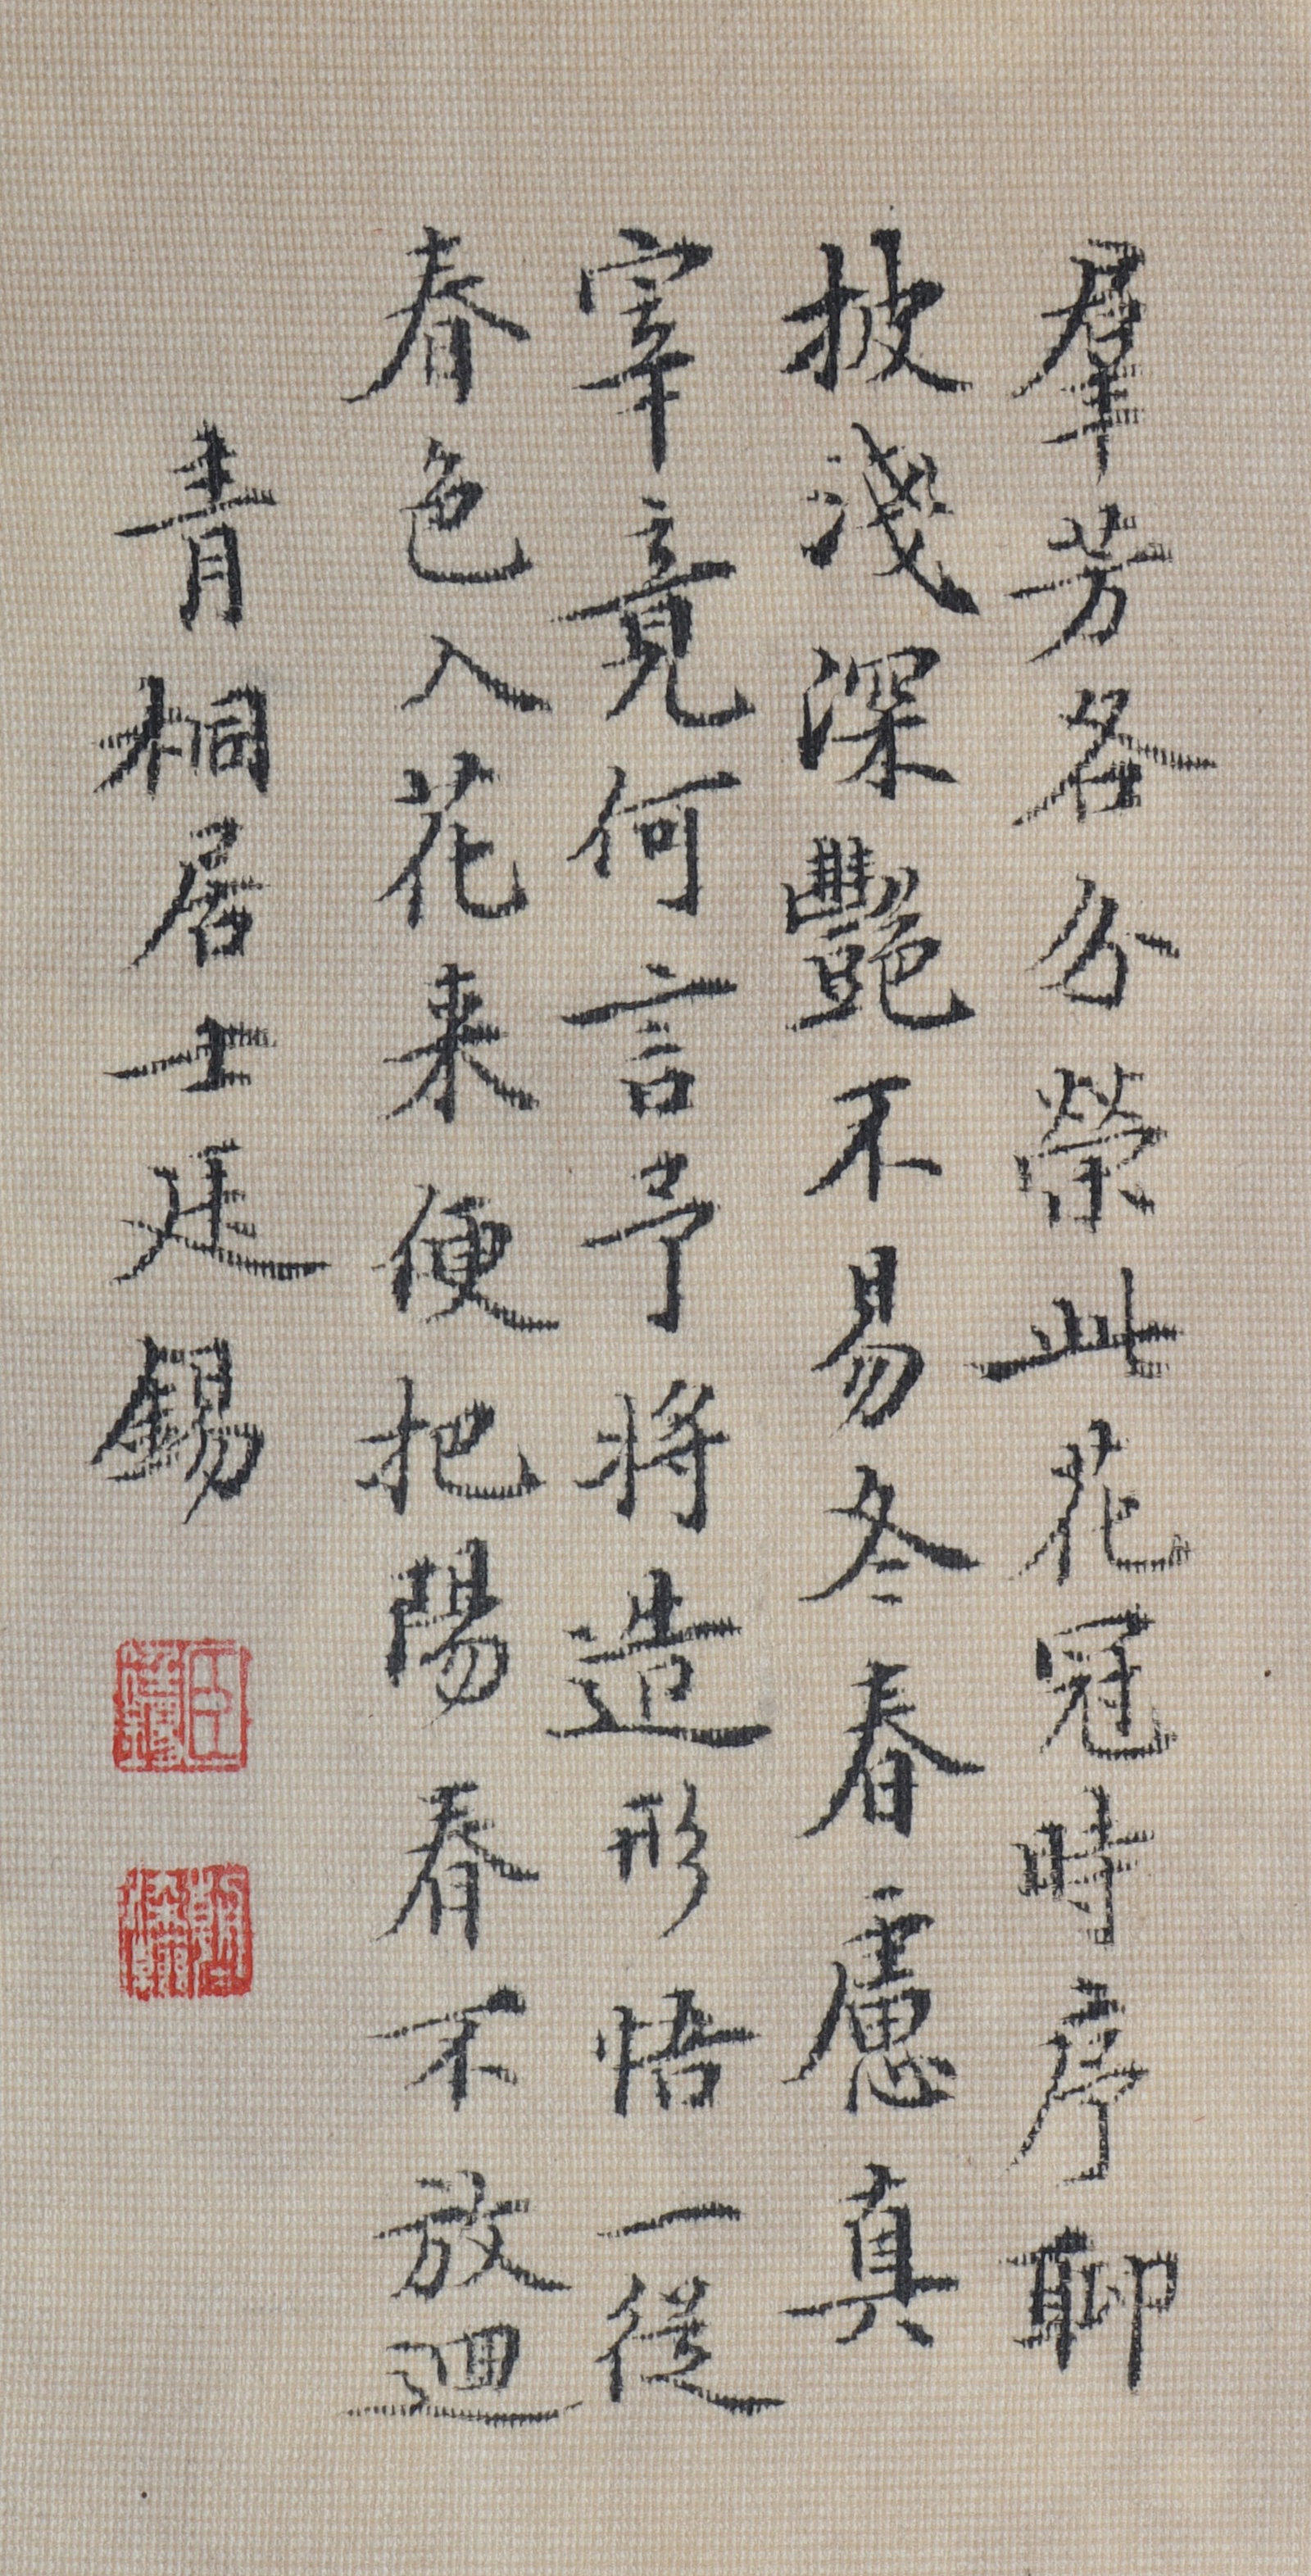 羣芳各分榮此花冠時序聊
披淺深豔不易冬春慮真
宰竟何言予將造形悟一從
春色入花来便把陽春不放迴
青桐居士廷錫